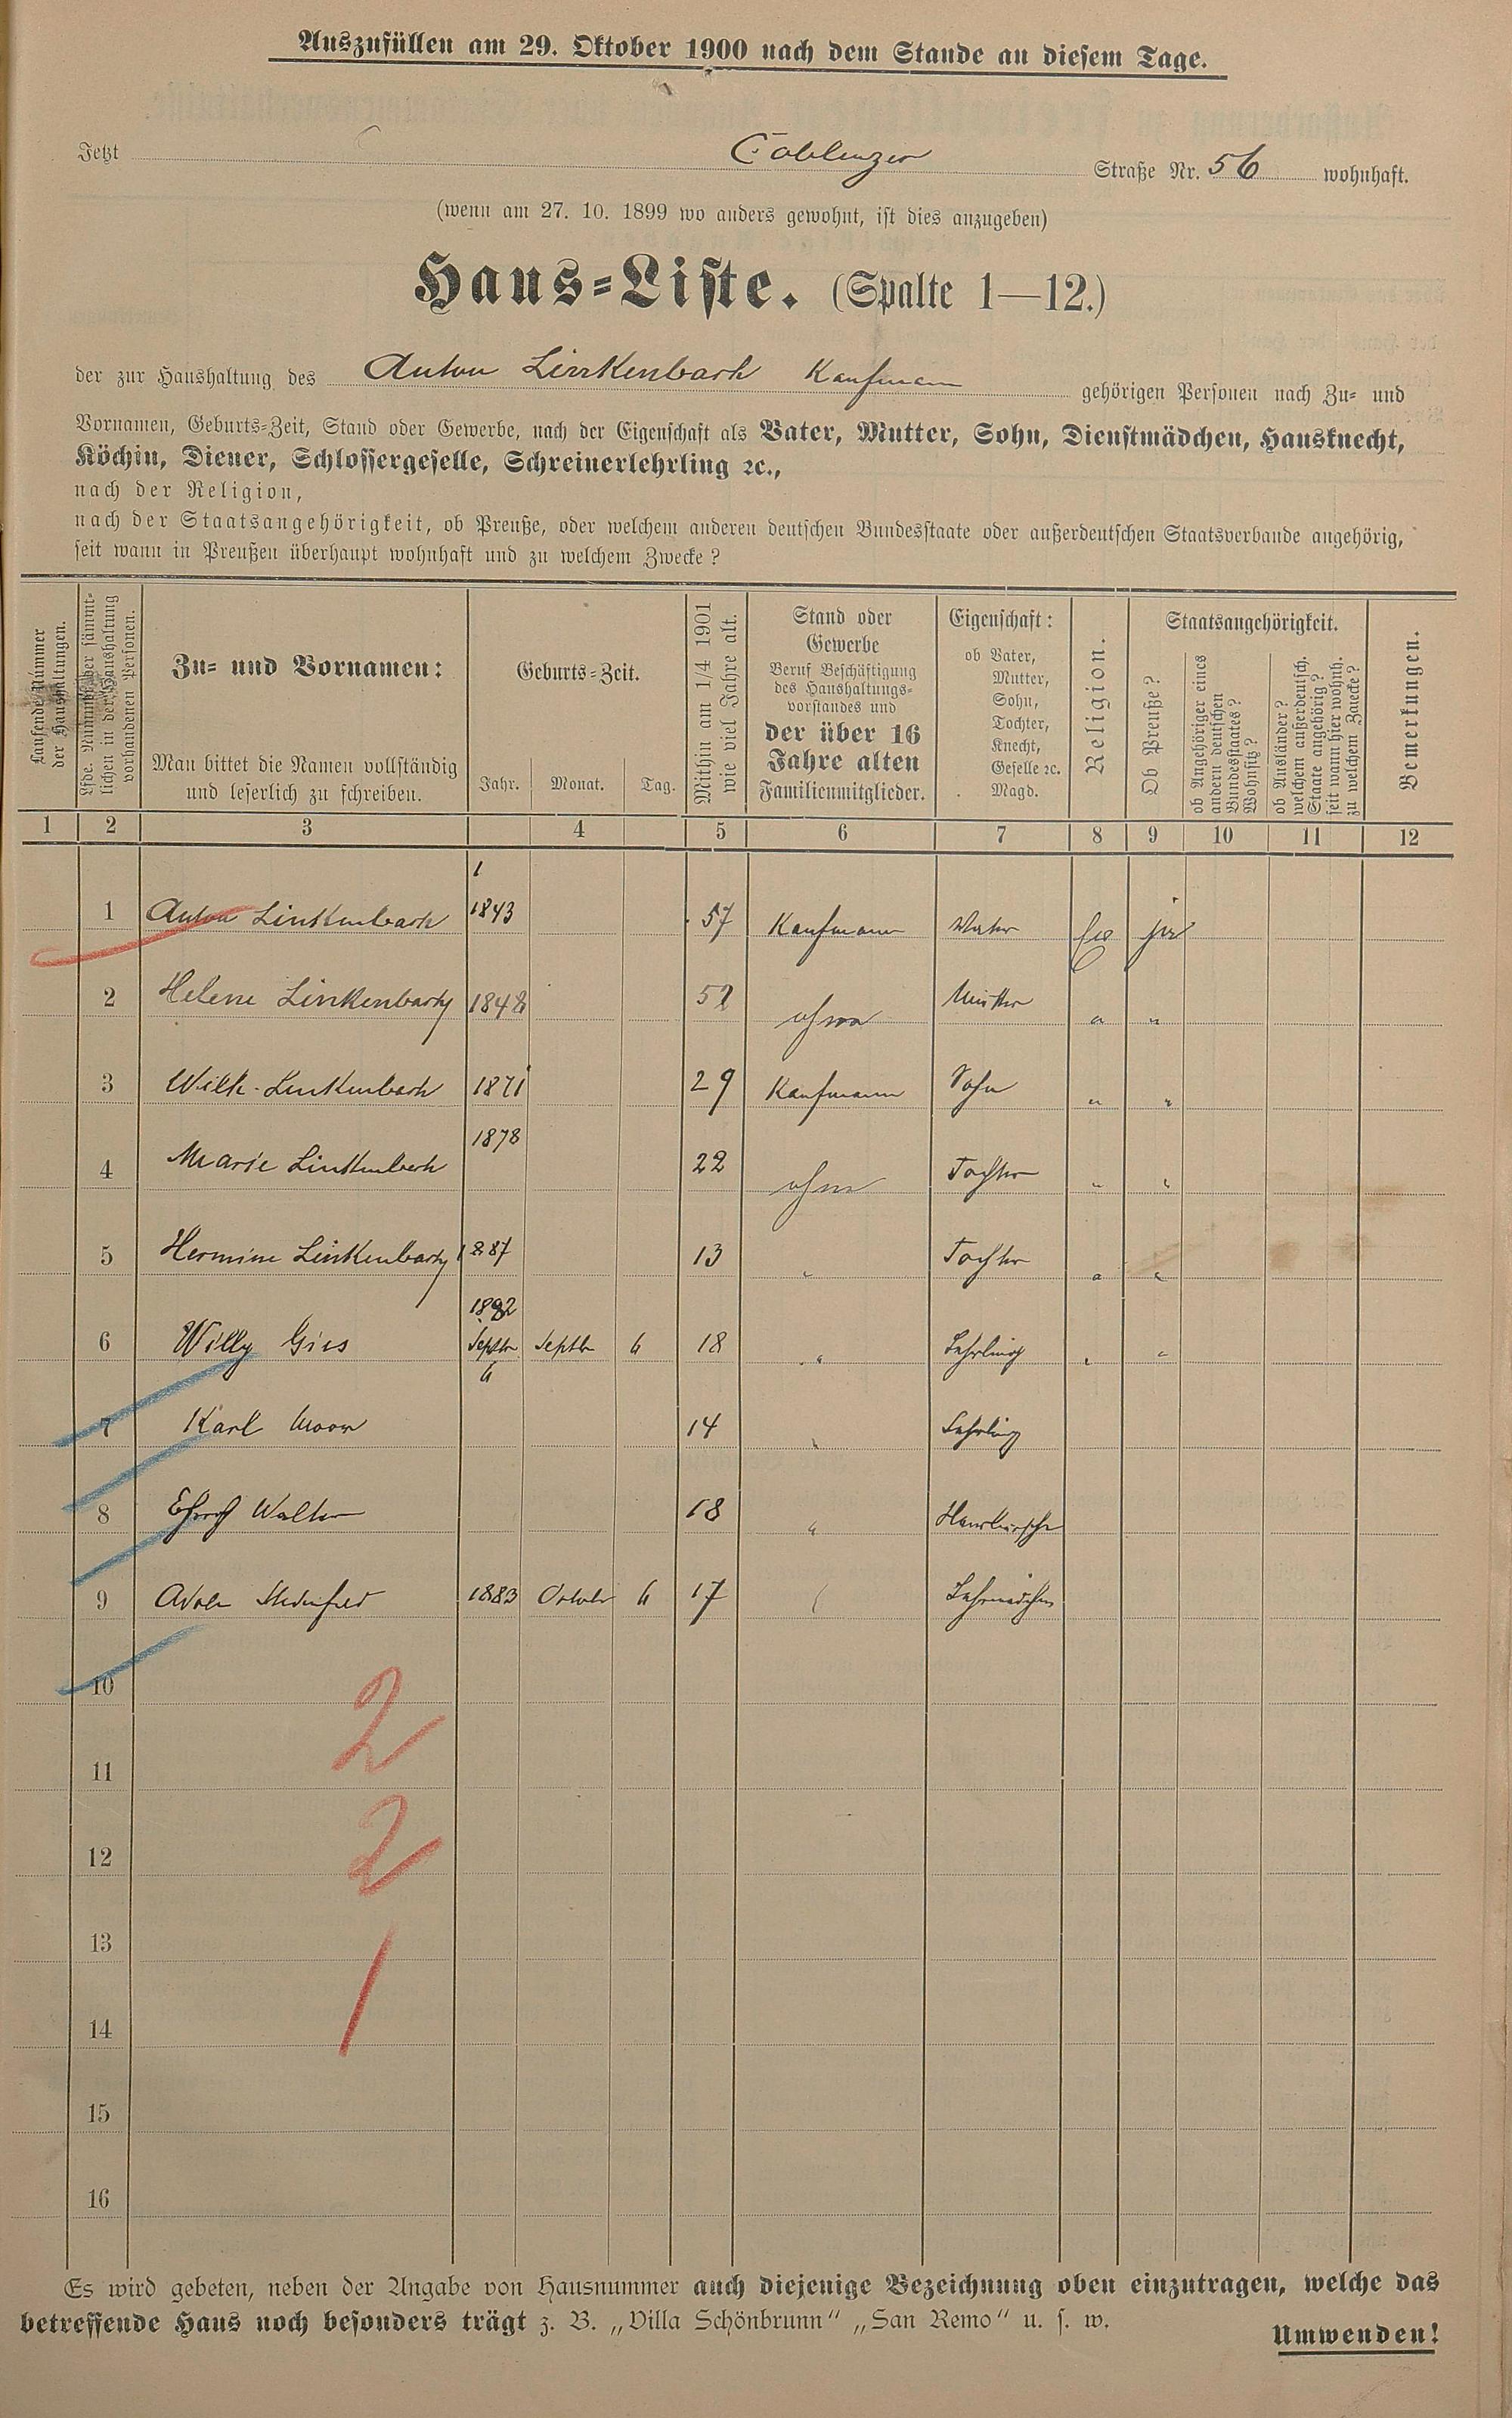 Auszufüllen am 29. Oktober 1900 nach dem Stande an diesem Tage.
Jetzt Coblenzer Straße Nr. 56 wohnhaft.
(wenn am 27. 10. 1899 wo anders gewohnt, ist dies anzugeben)
Haus-Liste. (Spalte 1—12.)
der zur Haushaltung des Anton Linkenbach Kaufmann gehörigen Personen nach Zu- und
Vornamen, Geburts-Zeit, Stand oder Gewerbe, nach der Eigenschaft als Vater, Mutter, Sohn, Dienstmädchen, Hausknecht,
Köchin, Diener, Schlossergeselle, Schreinerlehrling ꝛc.,
nach der Religion,
nach der Staatsangehörigkeit, ob Preuße, oder welchem anderen deutschen Bundesstaate oder außerdeutschen Staatsverbande angehörig,
seit wann in Preußen überhaupt wohnhaft und zu welchem Zwecke?
Laufende Nummer
der Haushaltungen.
Lfde. Nummer der sämmt-
lichen in der Haushaltung
vorhandenen Personen.
Zu- und Vornamen:
Man bittet die Namen vollständig
und leserlich zu schreiben.
Geburts-Zeit.
Jahr. Monat. Tag.
Mithin am 1/4 1901
wie viel Jahre alt.
Stand oder
Gewerbe
Beruf Beschäftigung
des Haushaltungs-
vorstandes und
der über 16
Jahre alten
Familienmitglieder.
Eigenschaft:
ob Vater,
Mutter,
Sohn,
Tochter,
Knecht,
Geselle ꝛc.
Magd.
Religion.
Staatsangehörigkeit.
Ob Preuße?
ob Angehöriger eines
andern deutschen
Bundesstaates?
Wohnsitz?
ob Ausländer?
welchem außerdeutsch.
Staate angehörig?
seit wann hier wohnh.
zu welchem Zwecke?
Bemerkungen.
1 2 3 4 5 6 7 8 9 10 11 12
1 Anton Linkenbach 1843 57 Kaufmann Vater ja
2 Helene Linkenbach 1848 52 ohne Mutter " "
3 Wilh. Linkenbach 1871 29 Kaufmann Sohn " "
4 Marie Linkenbach 1878 22 ohne Tochter " "
5 Hermine Linkenbach 1887 13 " Tochter " "
6 Willy Gies 1882 Septbr 6 18 " Lehrling " "
7 Karl 14 " Lehrling
8 Walter 18 " Hausbursche
9 1883 October 6 17 Lehrmädchen
10
2
11
12
2
13
1
14
15
16
Es wird gebeten, neben der Angabe von Hausnummer auch diejenige Bezeichnung oben einzutragen, welche das
betreffende Haus noch besonders trägt z. B. „Villa Schönbrunn“ „San Remo“ u. s. w.
Umwenden!